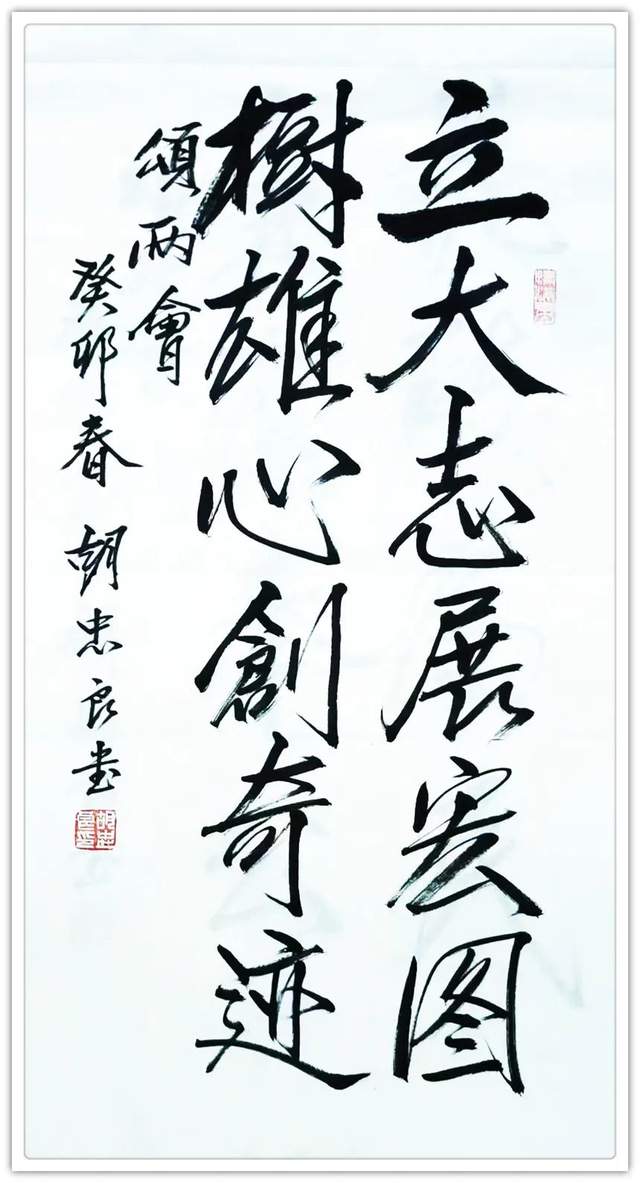 立大志展宏图
樹雄心創奇迹
頌两會
癸卯春 胡忠良书